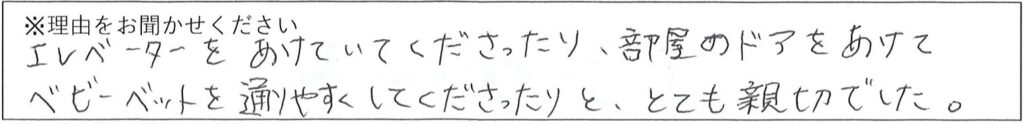 ※理由をお聞かせください
エレベーターをあけていてくださったり、部屋のドアをあけて
ベビーベットを通りやすくしてくださったりと、とても親切でした。